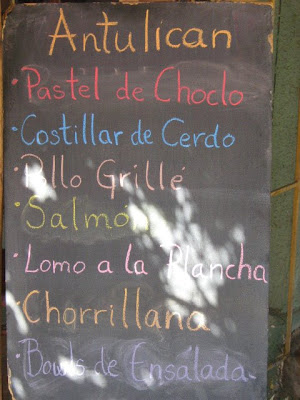 Antulican
· Pastel de Choclo
· Costillar de Cerdo
· Pollo Grillé
· Salmón
· Lomo a la Plancha
· Chorrillana
· Bowls de Ensalada